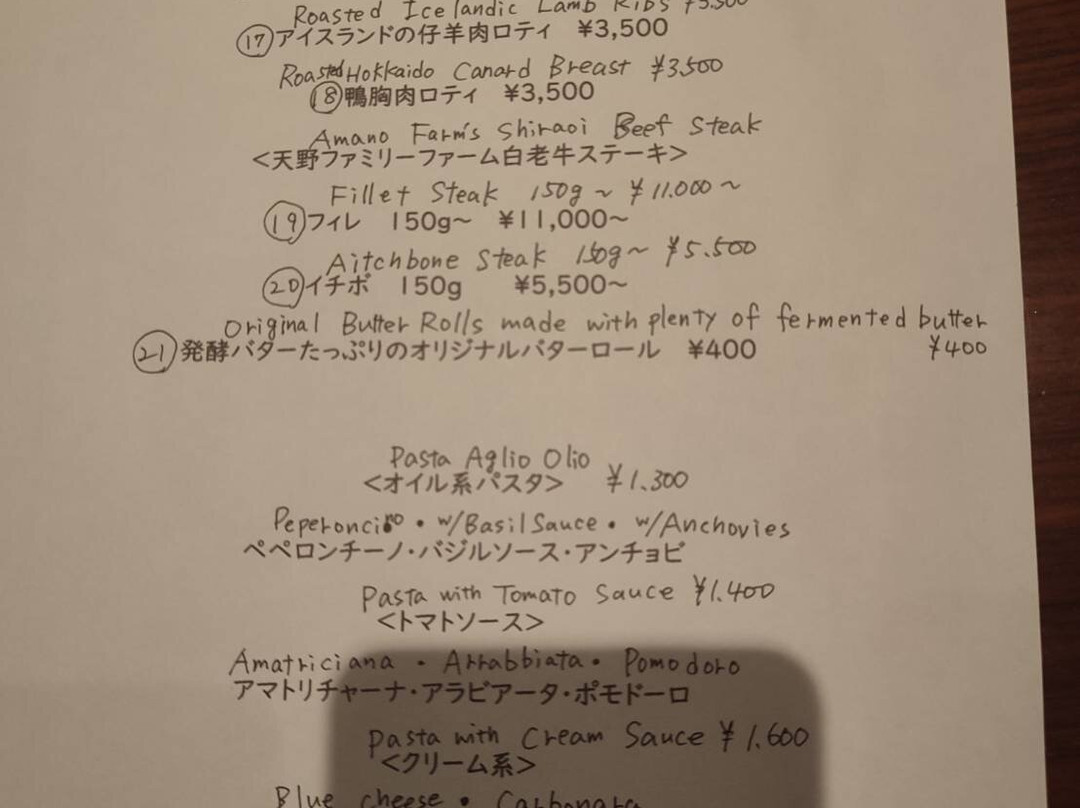 Roasted Icelandic Lamb Ribs ¥3.500
⑰アイスランドの仔羊肉ロティ ¥3,500
Roasted Hokkaido Canard Breast ¥3.500
⑱鴨胸肉ロティ ¥3,500
Amano Farm's Shiraoi Beef Steak
<天野ファミリーファーム白老牛ステーキ>
Fillet Steak 150g~ ¥11.000~
⑲フィレ 150g~ ¥11,000~
Aitchbone Steak 150g~ ¥5.500
⑳イチボ 150g ¥5,500~
Original Butter Rolls made with plenty of fermented butter
㉑発酵バターたっぷりのオリジナルバターロール ¥400 ¥400
Pasta Aglio Olio
<オイル系パスタ> ¥1.300
Peperoncino・w/Basil Sauce・w/Anchovies
ペペロンチーノ・バジルソース・アンチョビ
Pasta with Tomato Sauce ¥1.400
<トマトソース>
Amatriciana・Arrabbiata・Pomodoro
アマトリチャーナ・アラビアータ・ポモドーロ
Pasta with Cream Sauce ¥1.600
<クリーム系>
Blue cheese・Carbonara